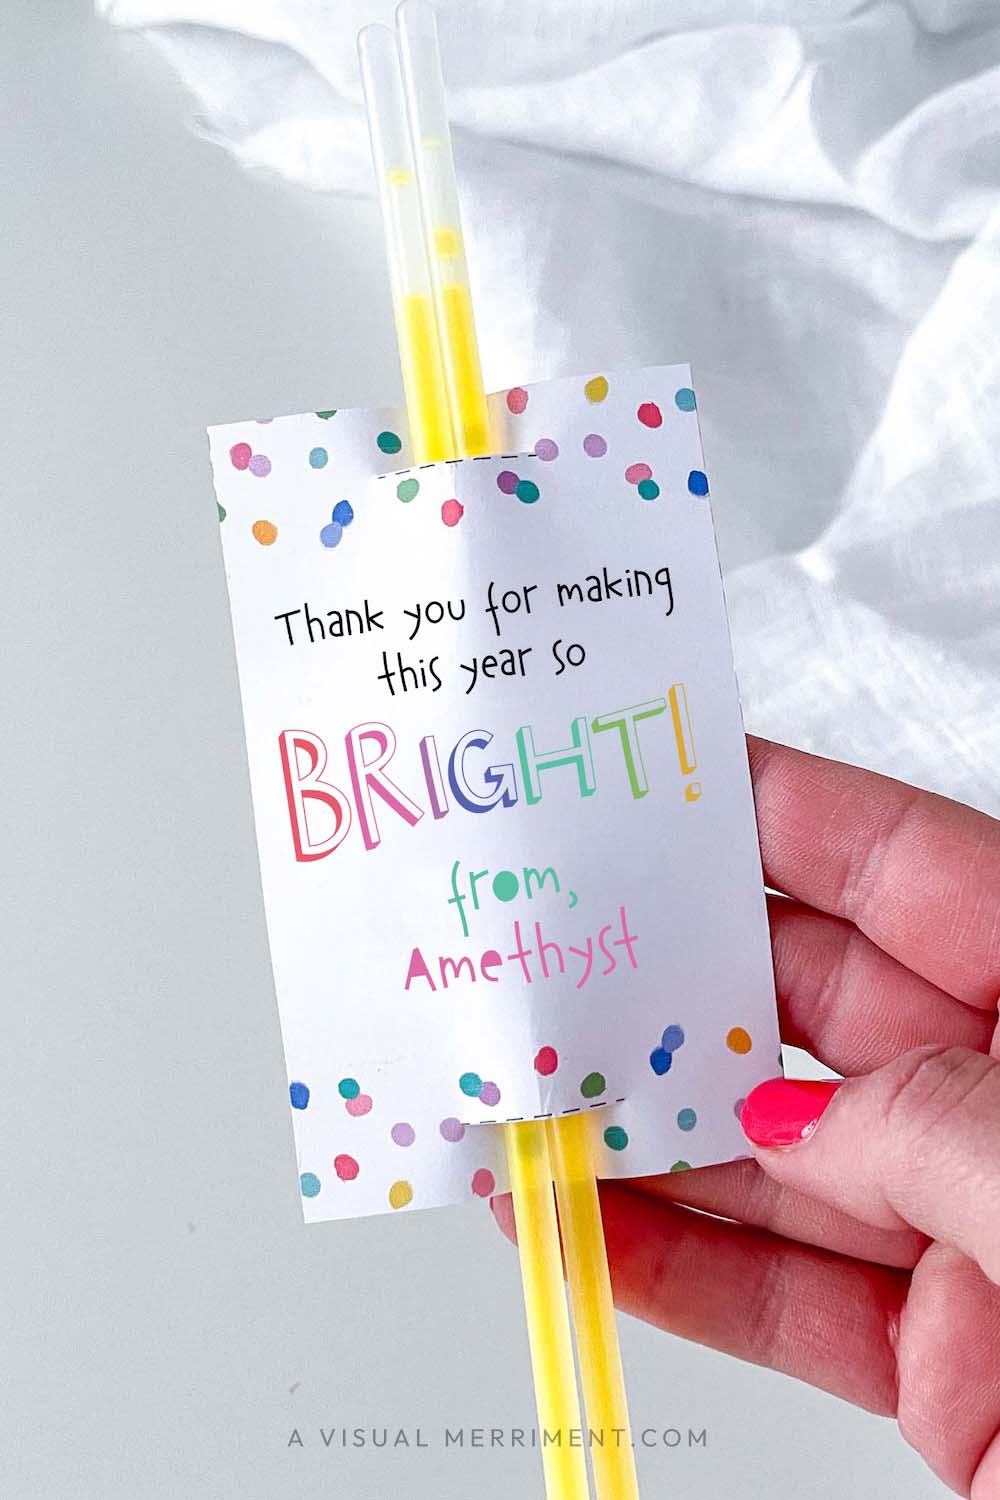 Thank you for making
this year so
BRIGHT!
from,
Amethyst
A VISUAL MERRIMENT.COM